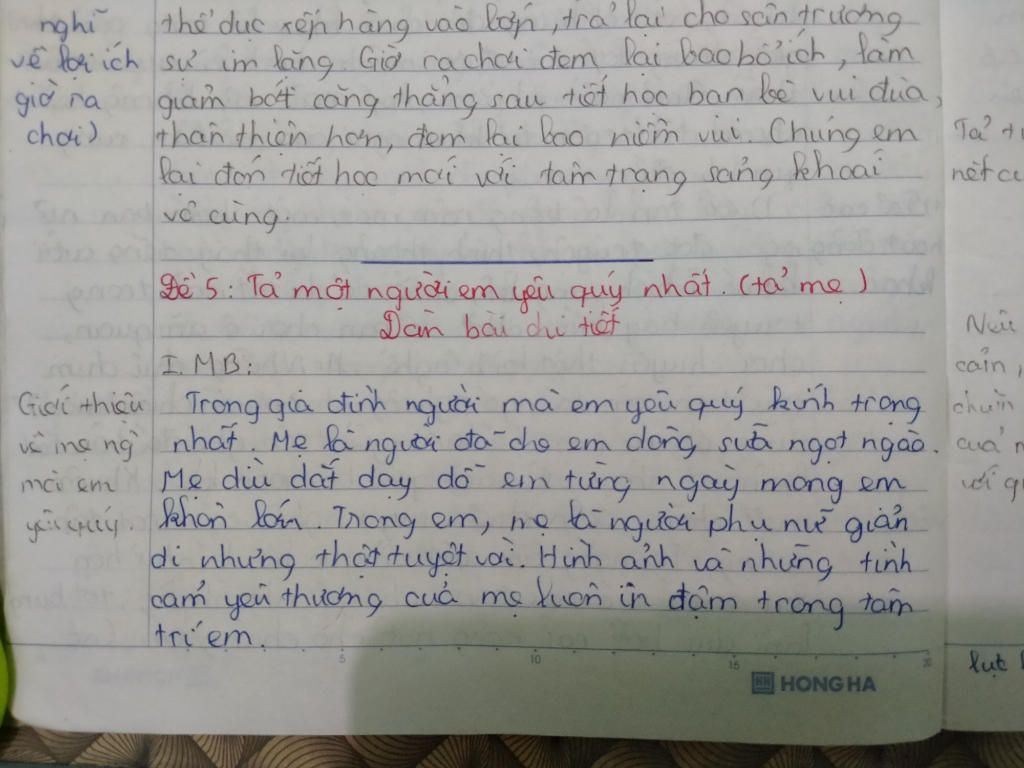 nghĩ
về lợi ích
giờ ra
chơi)
thể dục xếp hàng vào lớp, trả lại cho sân trường
sự im lặng. Giờ ra chơi đem lại bao bổ ích, làm
giảm bớt căng thẳng sau tiết học bạn bè vui đùa,
thân thiện hơn, đem lại bao niềm vui. Chúng em
lại đón tiết học mới với tâm trạng sảng khoái
vô cùng.
Đề 5: Tả một người em yêu quý nhất. (tả mẹ)
Dàn bài chi tiết
I. MB:
Giới thiệu
về mẹ ng
mà em
yêu quý
Trong gia đình người mà em yêu quý kính trọng
nhất. Mẹ là người đã cho em dòng sữa ngọt ngào.
Mẹ dìu dắt dạy dỗ em từng ngày mong em
khôn lớn. Trong em, mẹ là người phụ nữ giản
dị nhưng thật tuyệt vời. Hình ảnh và những tình
cảm yêu thương của mẹ luôn in đậm trong tâm
trí em.
5 10 15 20
HONG HA
Tả
nét
Nêu
cản,
chuẩn
của
với
lực